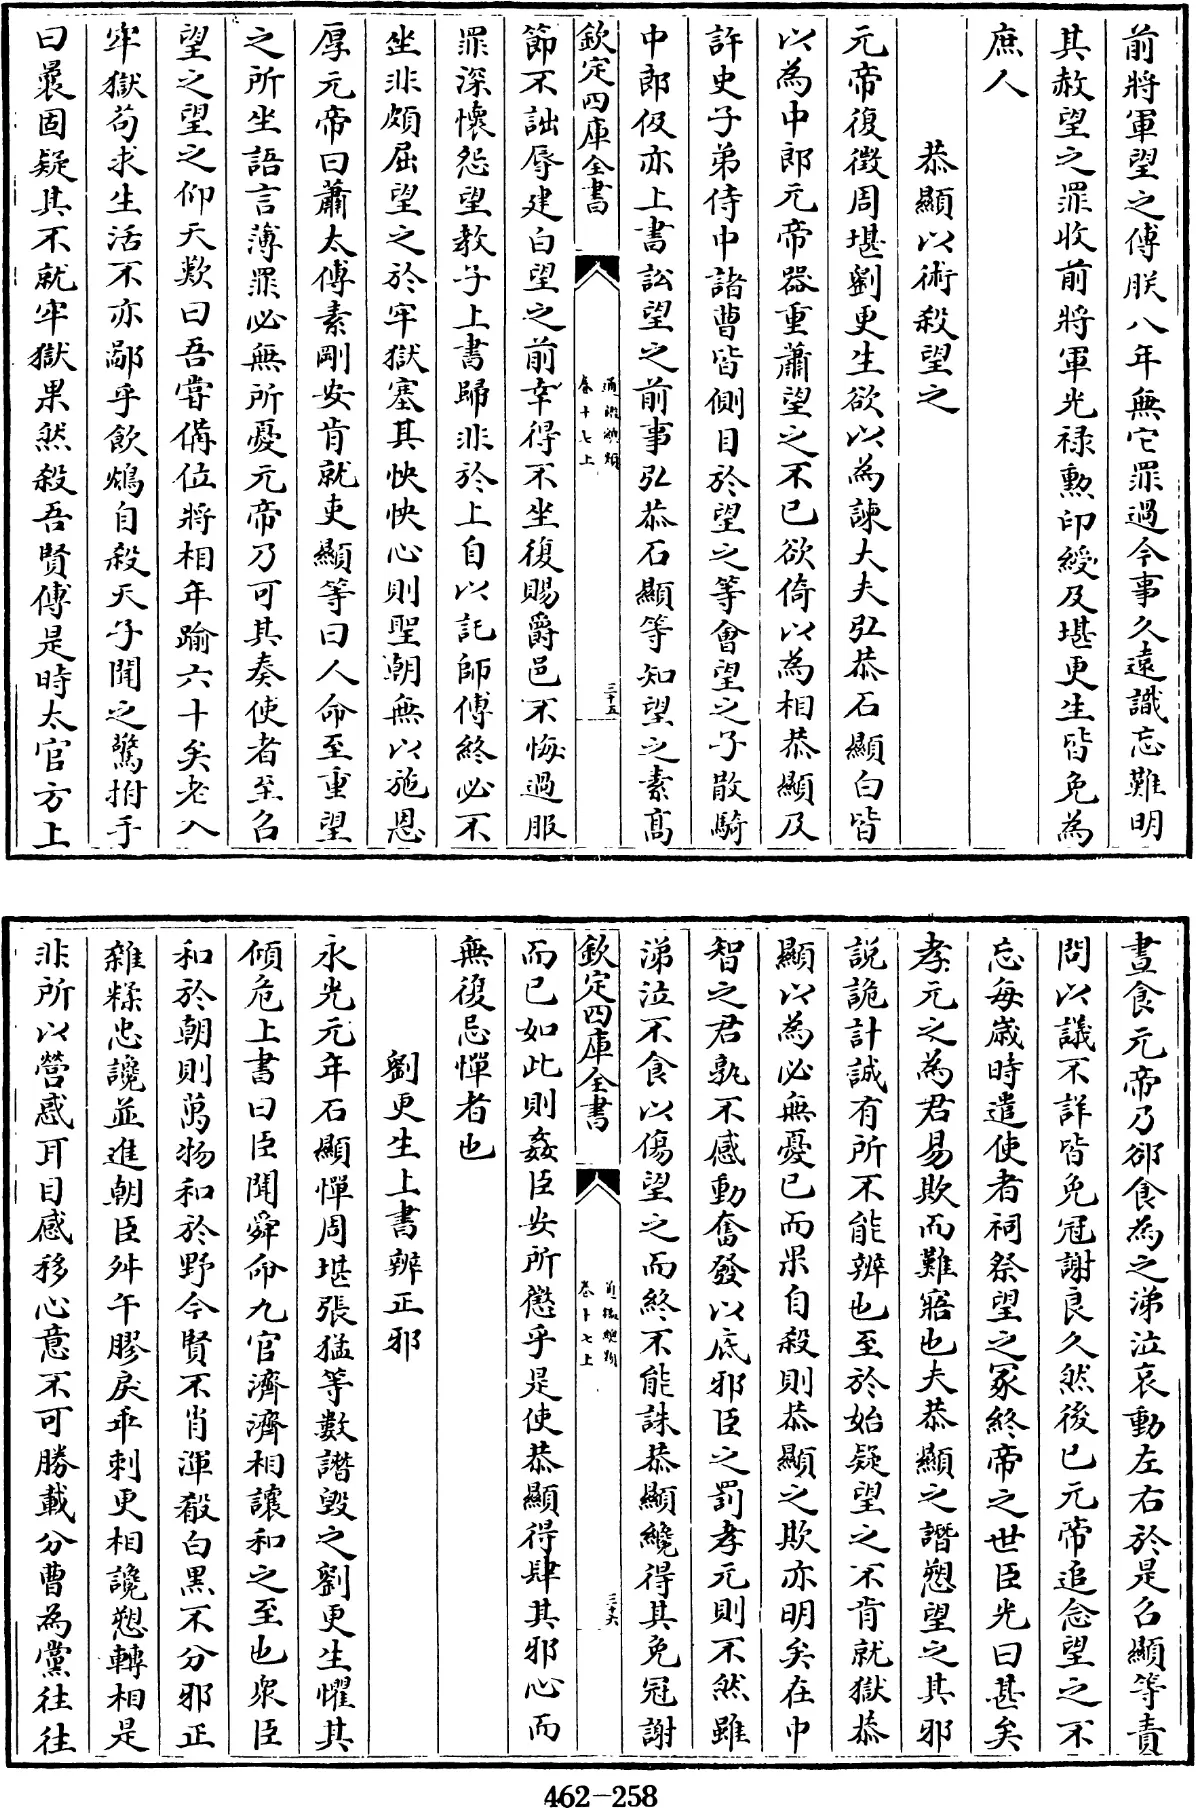 前將軍望之傅朕八年無它罪過今事久遠識忘難明
其赦望之罪收前將軍光祿勲印綬及堪更生皆免為
庶人
恭顯以術殺望之
元帝復徴周堪劉更生欲以為諫大夫弘恭石顯白皆
以為中郎元帝器重蕭望之不已欲倚以為相恭顯及
許史子弟侍中諸曹皆側目於望之等會望之子散騎
中郎伋亦上書訟望之前事弘恭石顯等知望之素髙
欽定四庫全書
通鑑總類
卷十七上
三十五
節不詘辱建白望之前幸得不坐復賜爵邑不悔過服
罪深懷怨望教子上書歸非於上自以託師傅終必不
坐非頗屈望之於牢獄塞其怏怏心則聖朝無以施恩
厚元帝曰蕭太傅素剛安肯就吏顯等曰人命至重望
之所坐語言薄罪必無所憂元帝乃可其奏使者至召
望之望之仰天歎曰吾嘗備位將相年踰六十矣老入
牢獄苟求生活不亦鄙乎飲鴆自殺天子聞之驚拊手
曰曩固疑其不就牢獄果然殺吾賢傅是時太官方上
晝食元帝乃卻食為之涕泣哀動左右於是召顯等責
問以議不詳皆免冠謝良久然後已元帝追念望之不
忘每歲時遣使者祠祭望之冢終帝之世臣光曰甚矣
孝元之為君易欺而難寤也夫恭顯之譖愬望之其邪
說詭計誠有所不能辨也至於始疑望之不肯就獄恭
顯以為必無憂已而果自殺則恭顯之欺亦明矣在中
智之君孰不感動奮發以底邪臣之罰孝元則不然雖
涕泣不食以傷望之而終不能誅恭顯纔得其免冠謝
欽定四庫全書
通鑑總類
卷十七上
三十六
而已如此則姦臣安所懲乎是使恭顯得肆其邪心而
無復忌憚者也
劉更生上書辨正邪
永光元年石顯憚周堪張猛等數譖毀之劉更生懼其
傾危上書曰臣聞舜命九官濟濟相讓和之至也衆臣
和於朝則萬物和於野今賢不肖渾殽白黑不分邪正
雜糅忠讒並進朝臣舛午膠戾乖刺更相讒愬轉相是
非所以營惑耳目感移心意不可勝載分曹為黨往往
462-258